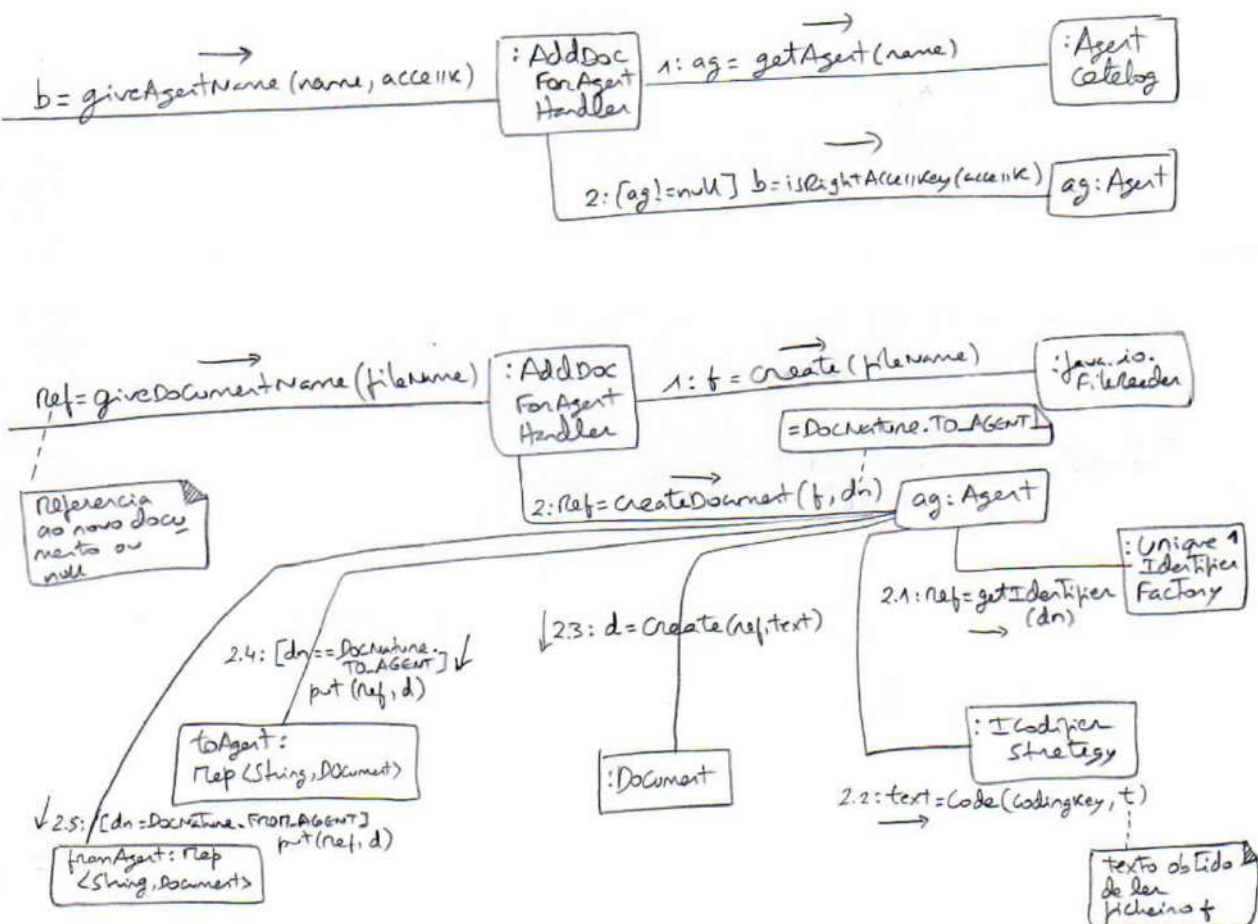 b= giveAgentName (name, accessK)
:AddDoc
ForAgent
Handler
1: ag= getAgent(name)
:Agent
catalog
2:[ag!=null] b=isRightAccessKey(accessK)
ag:Agent
ref=giveDocumentName(fileName)
:AddDoc
ForAgent
Handler
1: f= create(fileName)
:java.io.
FileReader
=DocNature.TO_AGENT
referencia
ao novo docu
mento ou
null
2:ref=createDocument(f,dn)
ag:Agent
:Unique
Identifier
Factory
1
2.1:ref=getIdentifier
(dn)
2.3: d=create(ref,text)
2.4: [dn==DocNature.
TO_AGENT]
put(ref,d)
toAgent:
Map<String,Document>
:Document
:ICodifier
Strategy
2.2:text=code(codingKey,t)
2.5: [dn=DocNature.FROM_AGENT]
put(ref,d)
fromAgent: Map
<String,Document>
texto obtido
de ler
ficheiro f